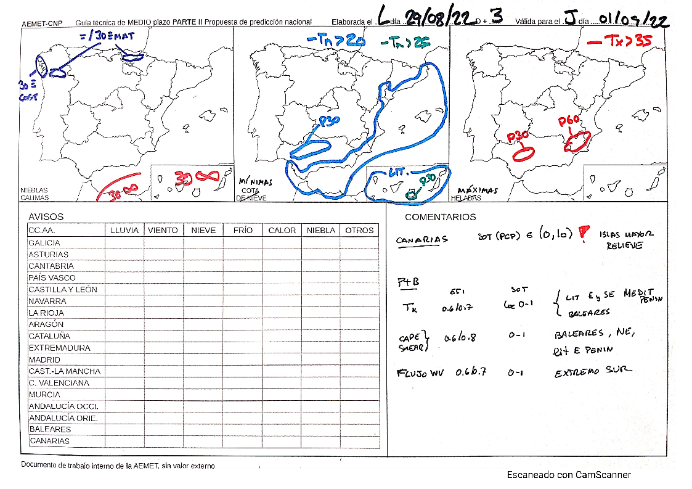 AEMET-CNP Guía técnica de MEDIO plazo PARTE II Propuesta de predicción nacional Elaborada el L día 29/08/22 D+ 3 Válida para el J día 01/09/22
=/30≡MAT
30≡
NIEBLAS
CALIMAS
30∞
30∞
-Tn>20 -Tn>25
P30
LIT
P30
MÍNIMAS
COTA
DE NIEVE
-Tx>35
P30
P60
MÁXIMAS
HELADAS
AVISOS
CC.AA. LLUVIA VIENTO NIEVE FRÍO CALOR NIEBLA OTROS
GALICIA
ASTURIAS
CANTABRIA
PAÍS VASCO
CASTILLA Y LEÓN
NAVARRA
LA RIOJA
ARAGÓN
CATALUÑA
EXTREMADURA
MADRID
CAST.-LA MANCHA
C. VALENCIANA
MURCIA
ANDALUCÍA OCCI.
ANDALUCÍA ORIE.
BALEARES
CANARIAS
COMENTARIOS
CANARIAS SOT (PCP) E (0,10) ISLAS MAYOR
RELIEVE
P+B
EFI SOT
Tx 0.6/0.7 0-1 LIT E y SE MEDIT
PENIN
BALEARES
CAPE
SHEAR 0.6/0.8 0-1 BALEARES, NE,
LIT E PENIN
FLUJO WV 0.6/0.7 0-1 EXTREMO SUR
Documento de trabajo interno de la AEMET, sin valor externo
Escaneado con CamScanner